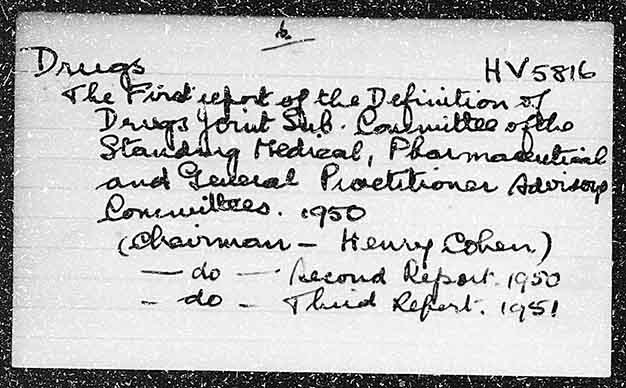 b.
Drugs HV5816
The First report of the Definition of
Drugs Joint Sub. Committee of the
Standing Medical, Pharmaceutical
and General Practitioner Advisory
Committees. 1950
(Chairman – Henry Cohen)
— do — Second Report. 1950
- do - Third Report. 1951